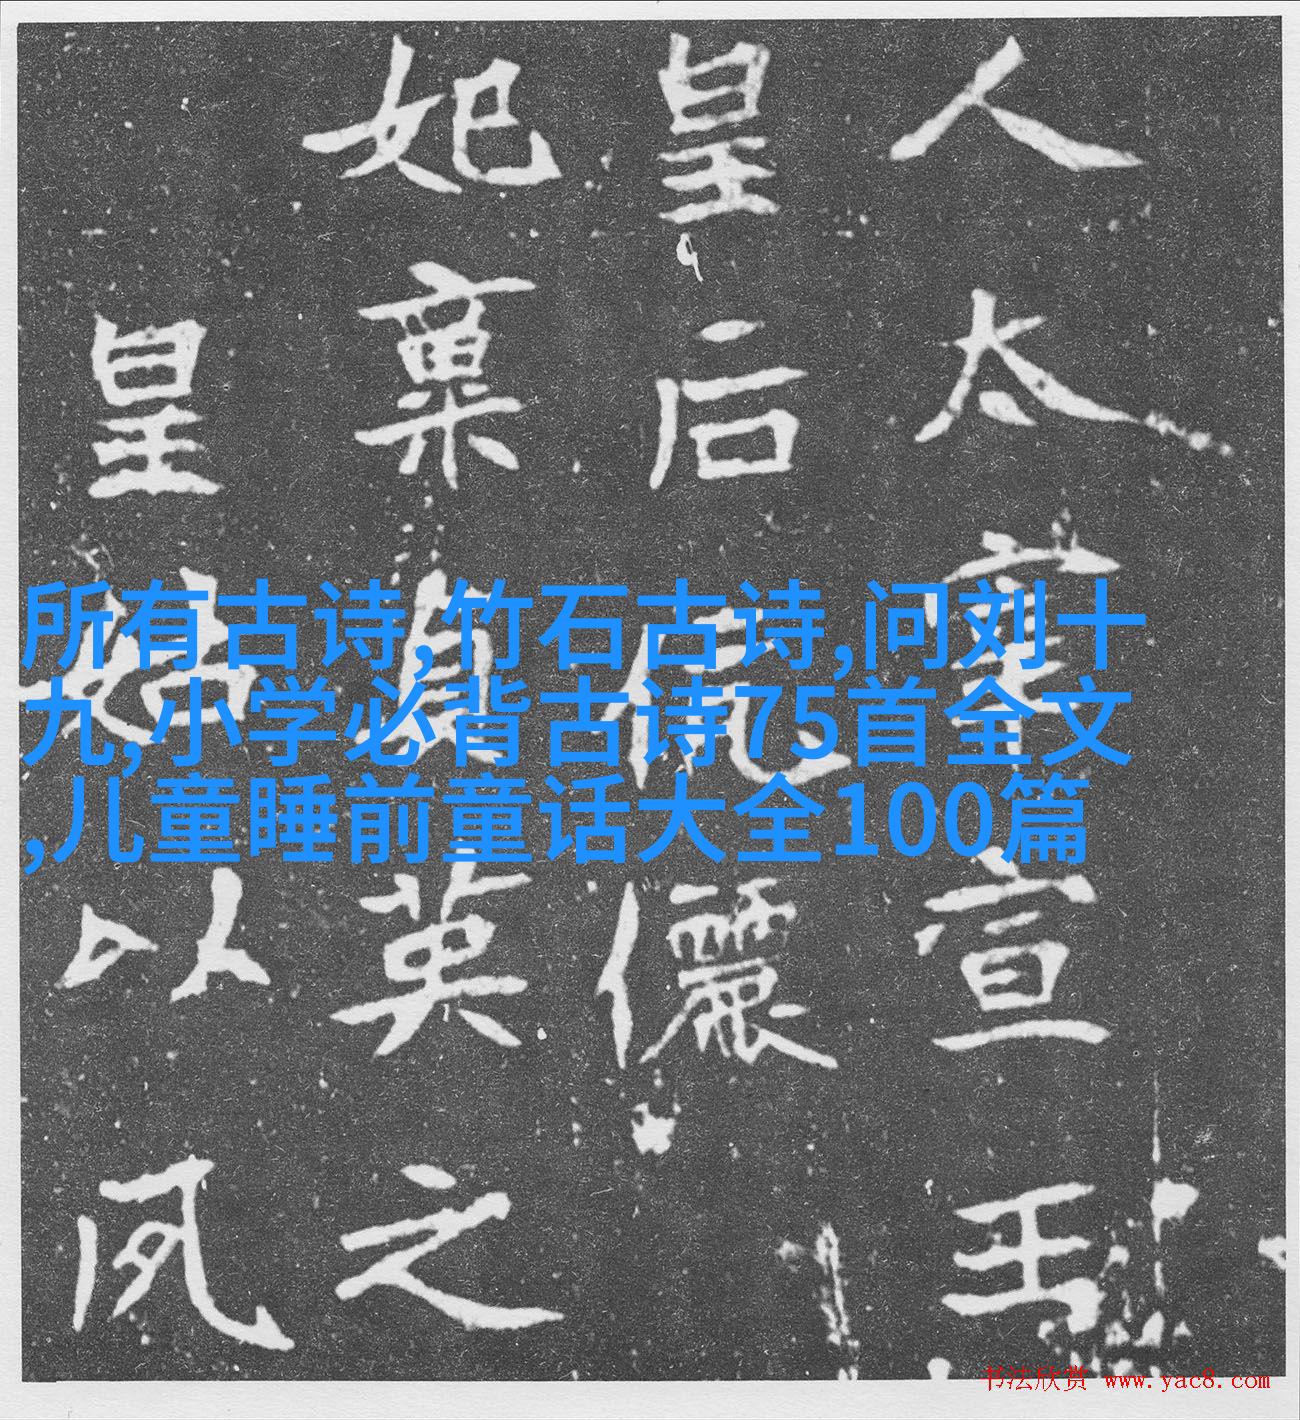 人太宣王
皇后伉儷
妃稟貞英之
皇姑以夙
所有古诗,竹石古诗,问刘十
九,小学必背古诗75首全文
,儿童睡前童话大全100篇
书法欣赏 www.yac8.com